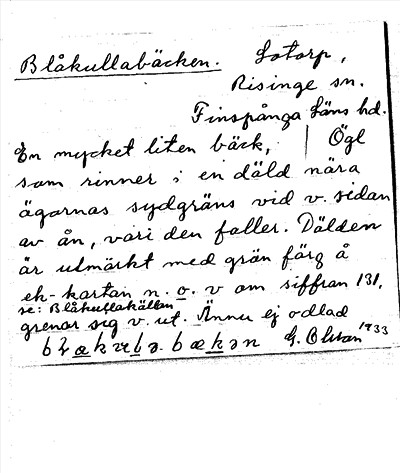 Blåkullabäcken. Lotorp,
Risinge sn.
Finspånga Läns hd.
En mycket liten bäck, Ögl
som rinner i en däld nära
ägornas sydgräns vid v. sidan
av ån, vari den faller. Dälden
är utmärkt med grön färg å
ek-kartan n. o. v om siffran 131,
se: Blåkullakällan
grenar sig v. ut. Ännu ej odlad
1933